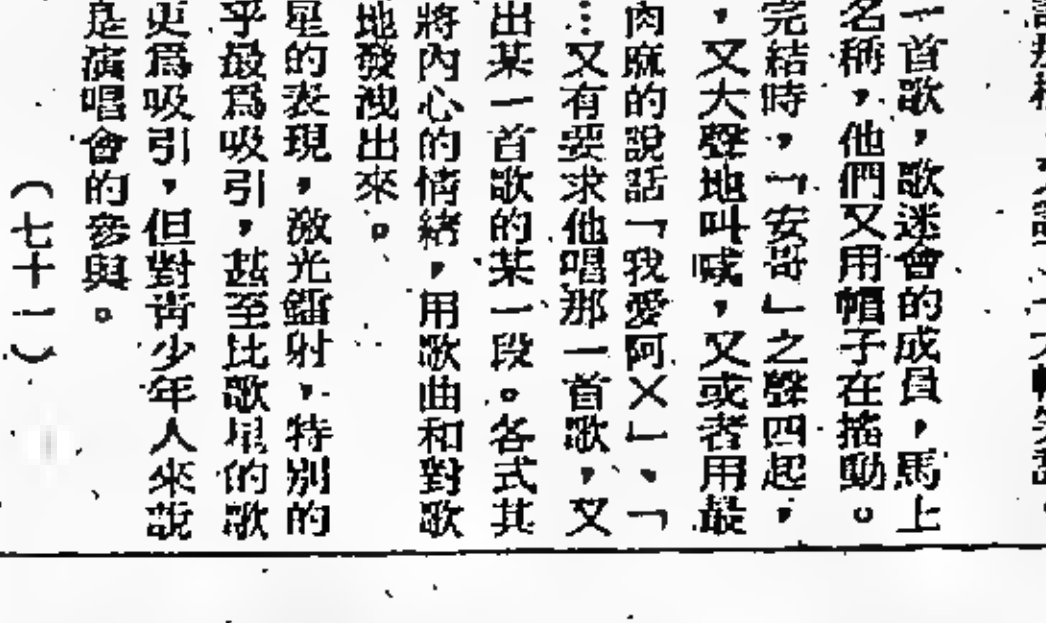 一首歌，歌迷會的成員，馬上
名稱，他們又用帽子在搖動。
完結時，「安哥」之聲四起，
，又大聲地叫喊，又或者用最
肉麻的說話「我愛阿×」、「
…又有要求他唱那一首歌，又
出某一首歌的某一段。各式其
將內心的情緒，用歌曲和對歌
地發洩出來。
星的表現，激光鐳射，特別的
乎最爲吸引，甚至比歌星的歌
更爲吸引，但對青少年人來說
是演唱會的參與。
（七十一）